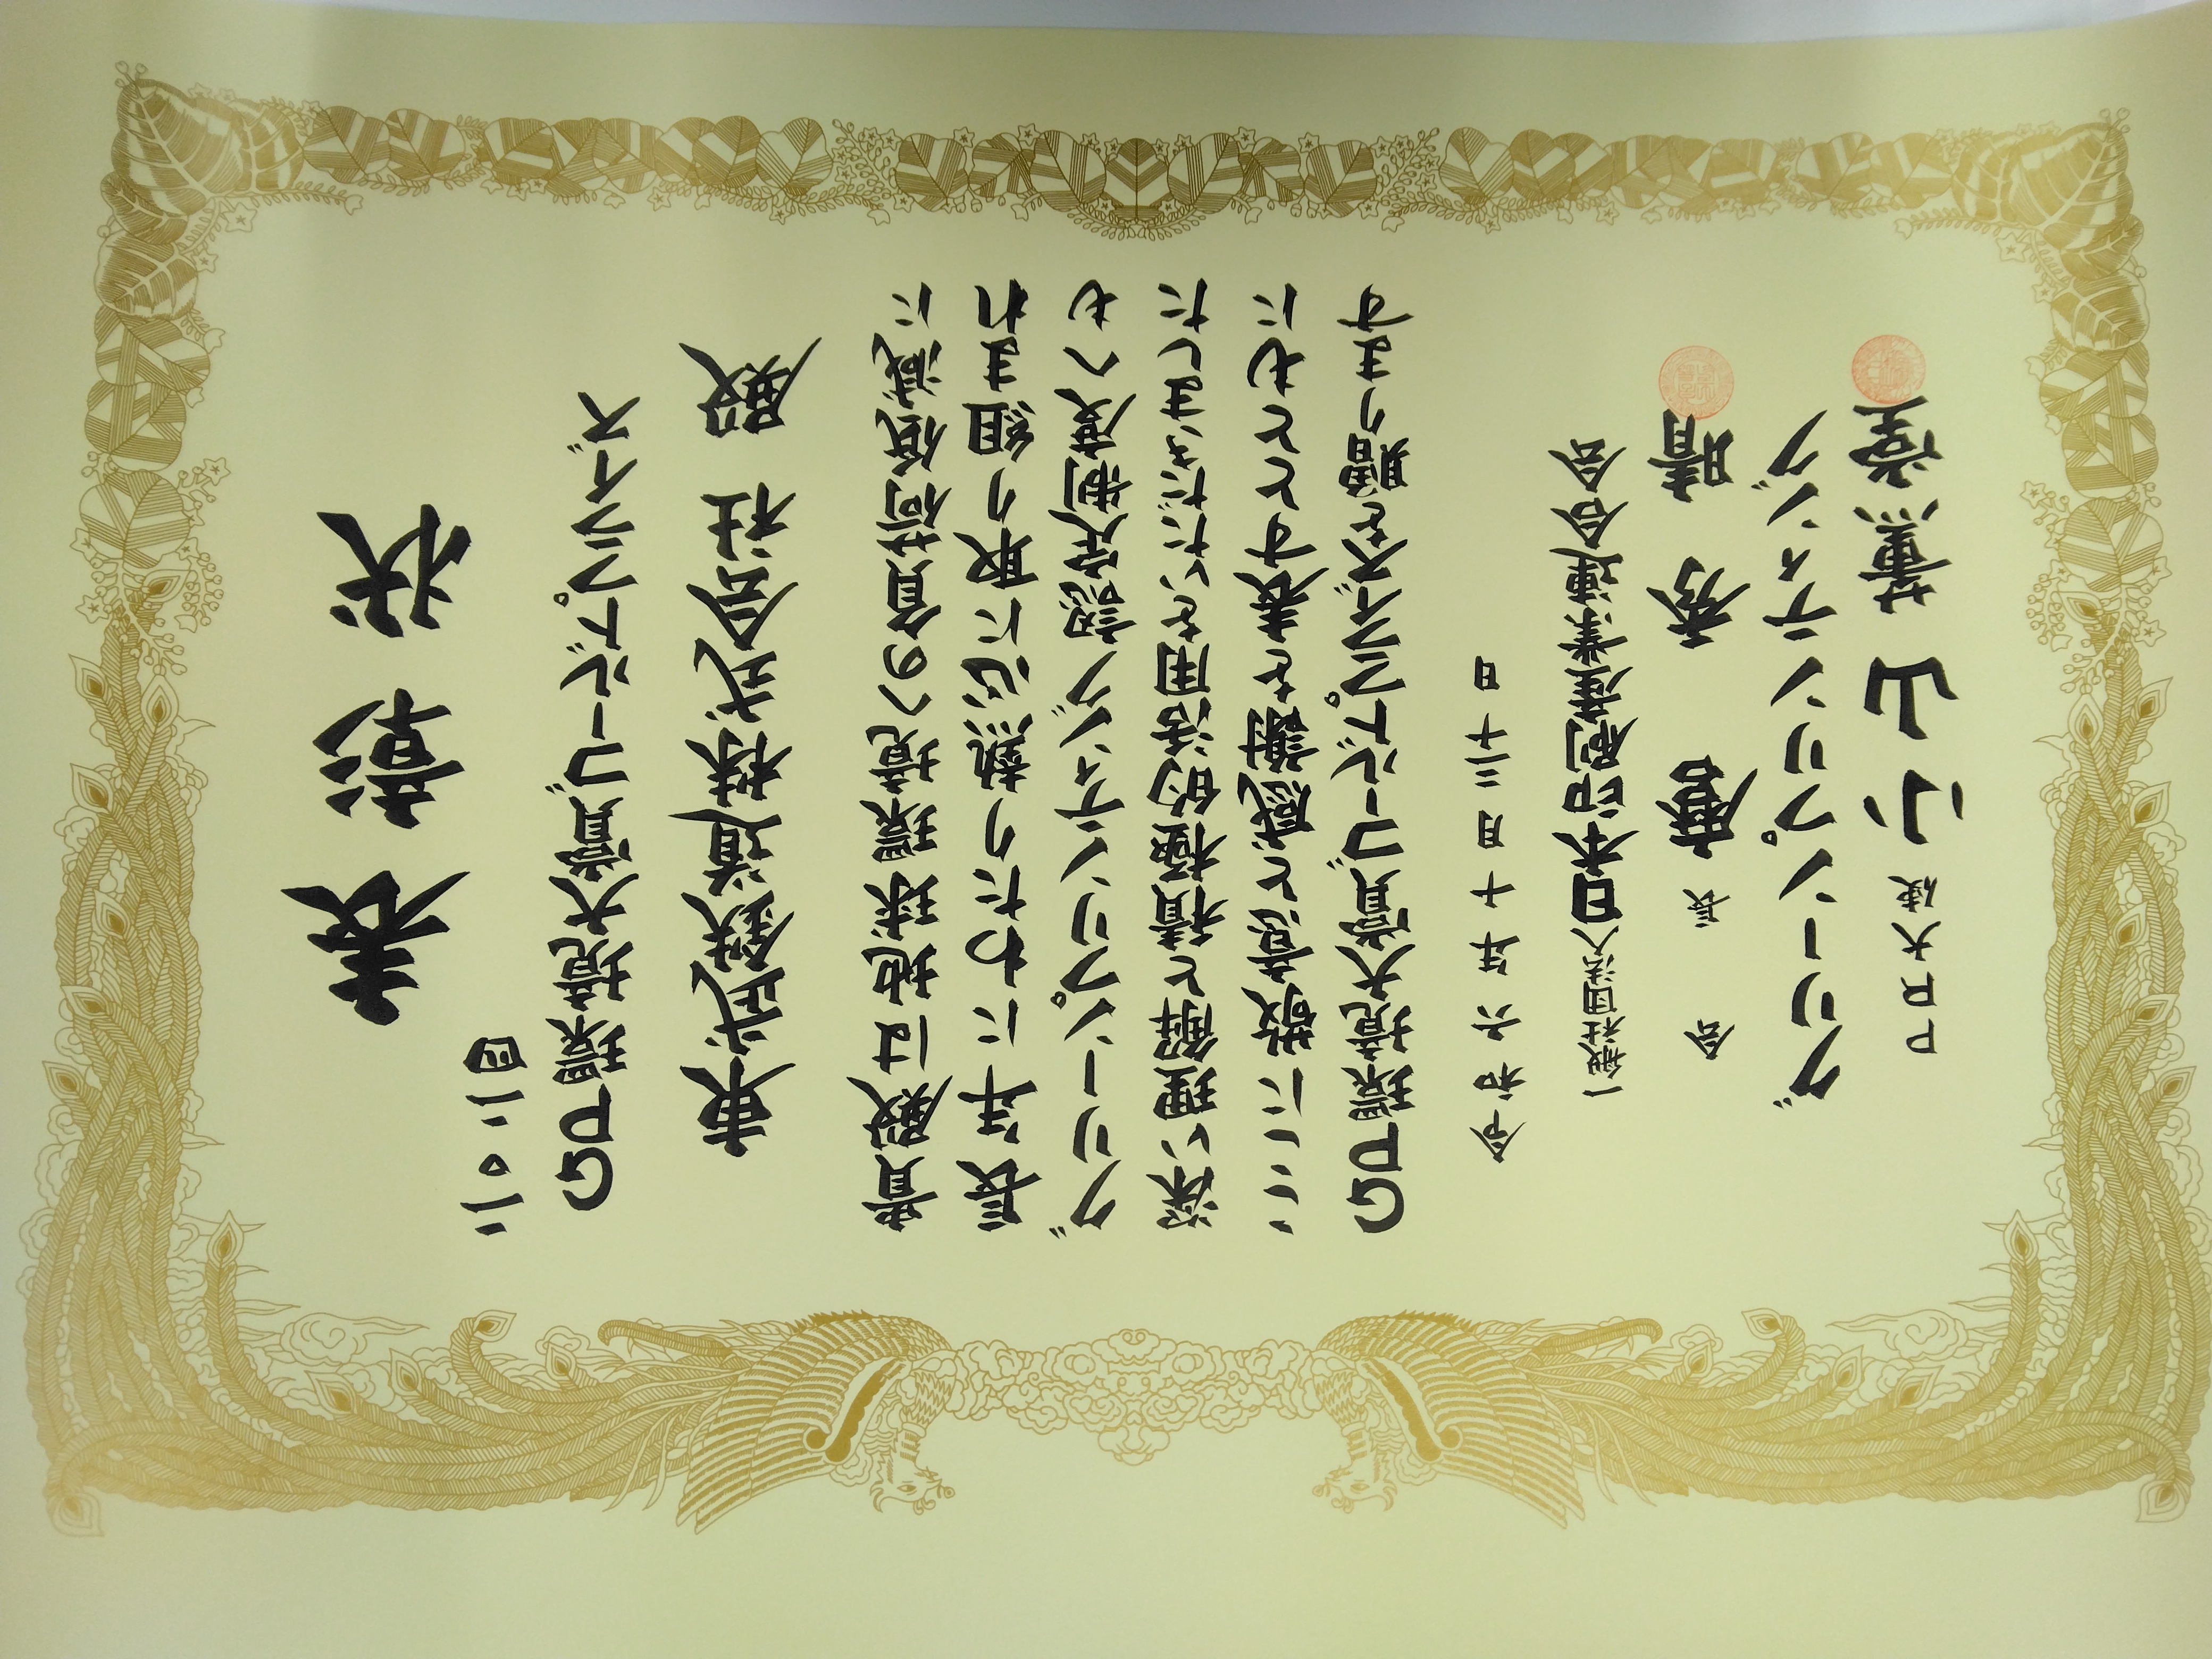 表彰状
二〇二四
GP環境大賞ゴールドプライズ
東武鉄道株式会社 殿
貴殿は地球環境への負荷低減に
長年にわたり熱心に取り組まれ
グリーンプリンティング認定制度へも
深い理解と積極的活用をいただきました
ここに敬意と感謝を表すとともに
GP環境大賞ゴールドプライズを贈ります
令和六年十月三十日
一般社団法人日本印刷産業連合会
会長 麿 秀晴
グリーンプリンティング
PR大使 小山薫堂